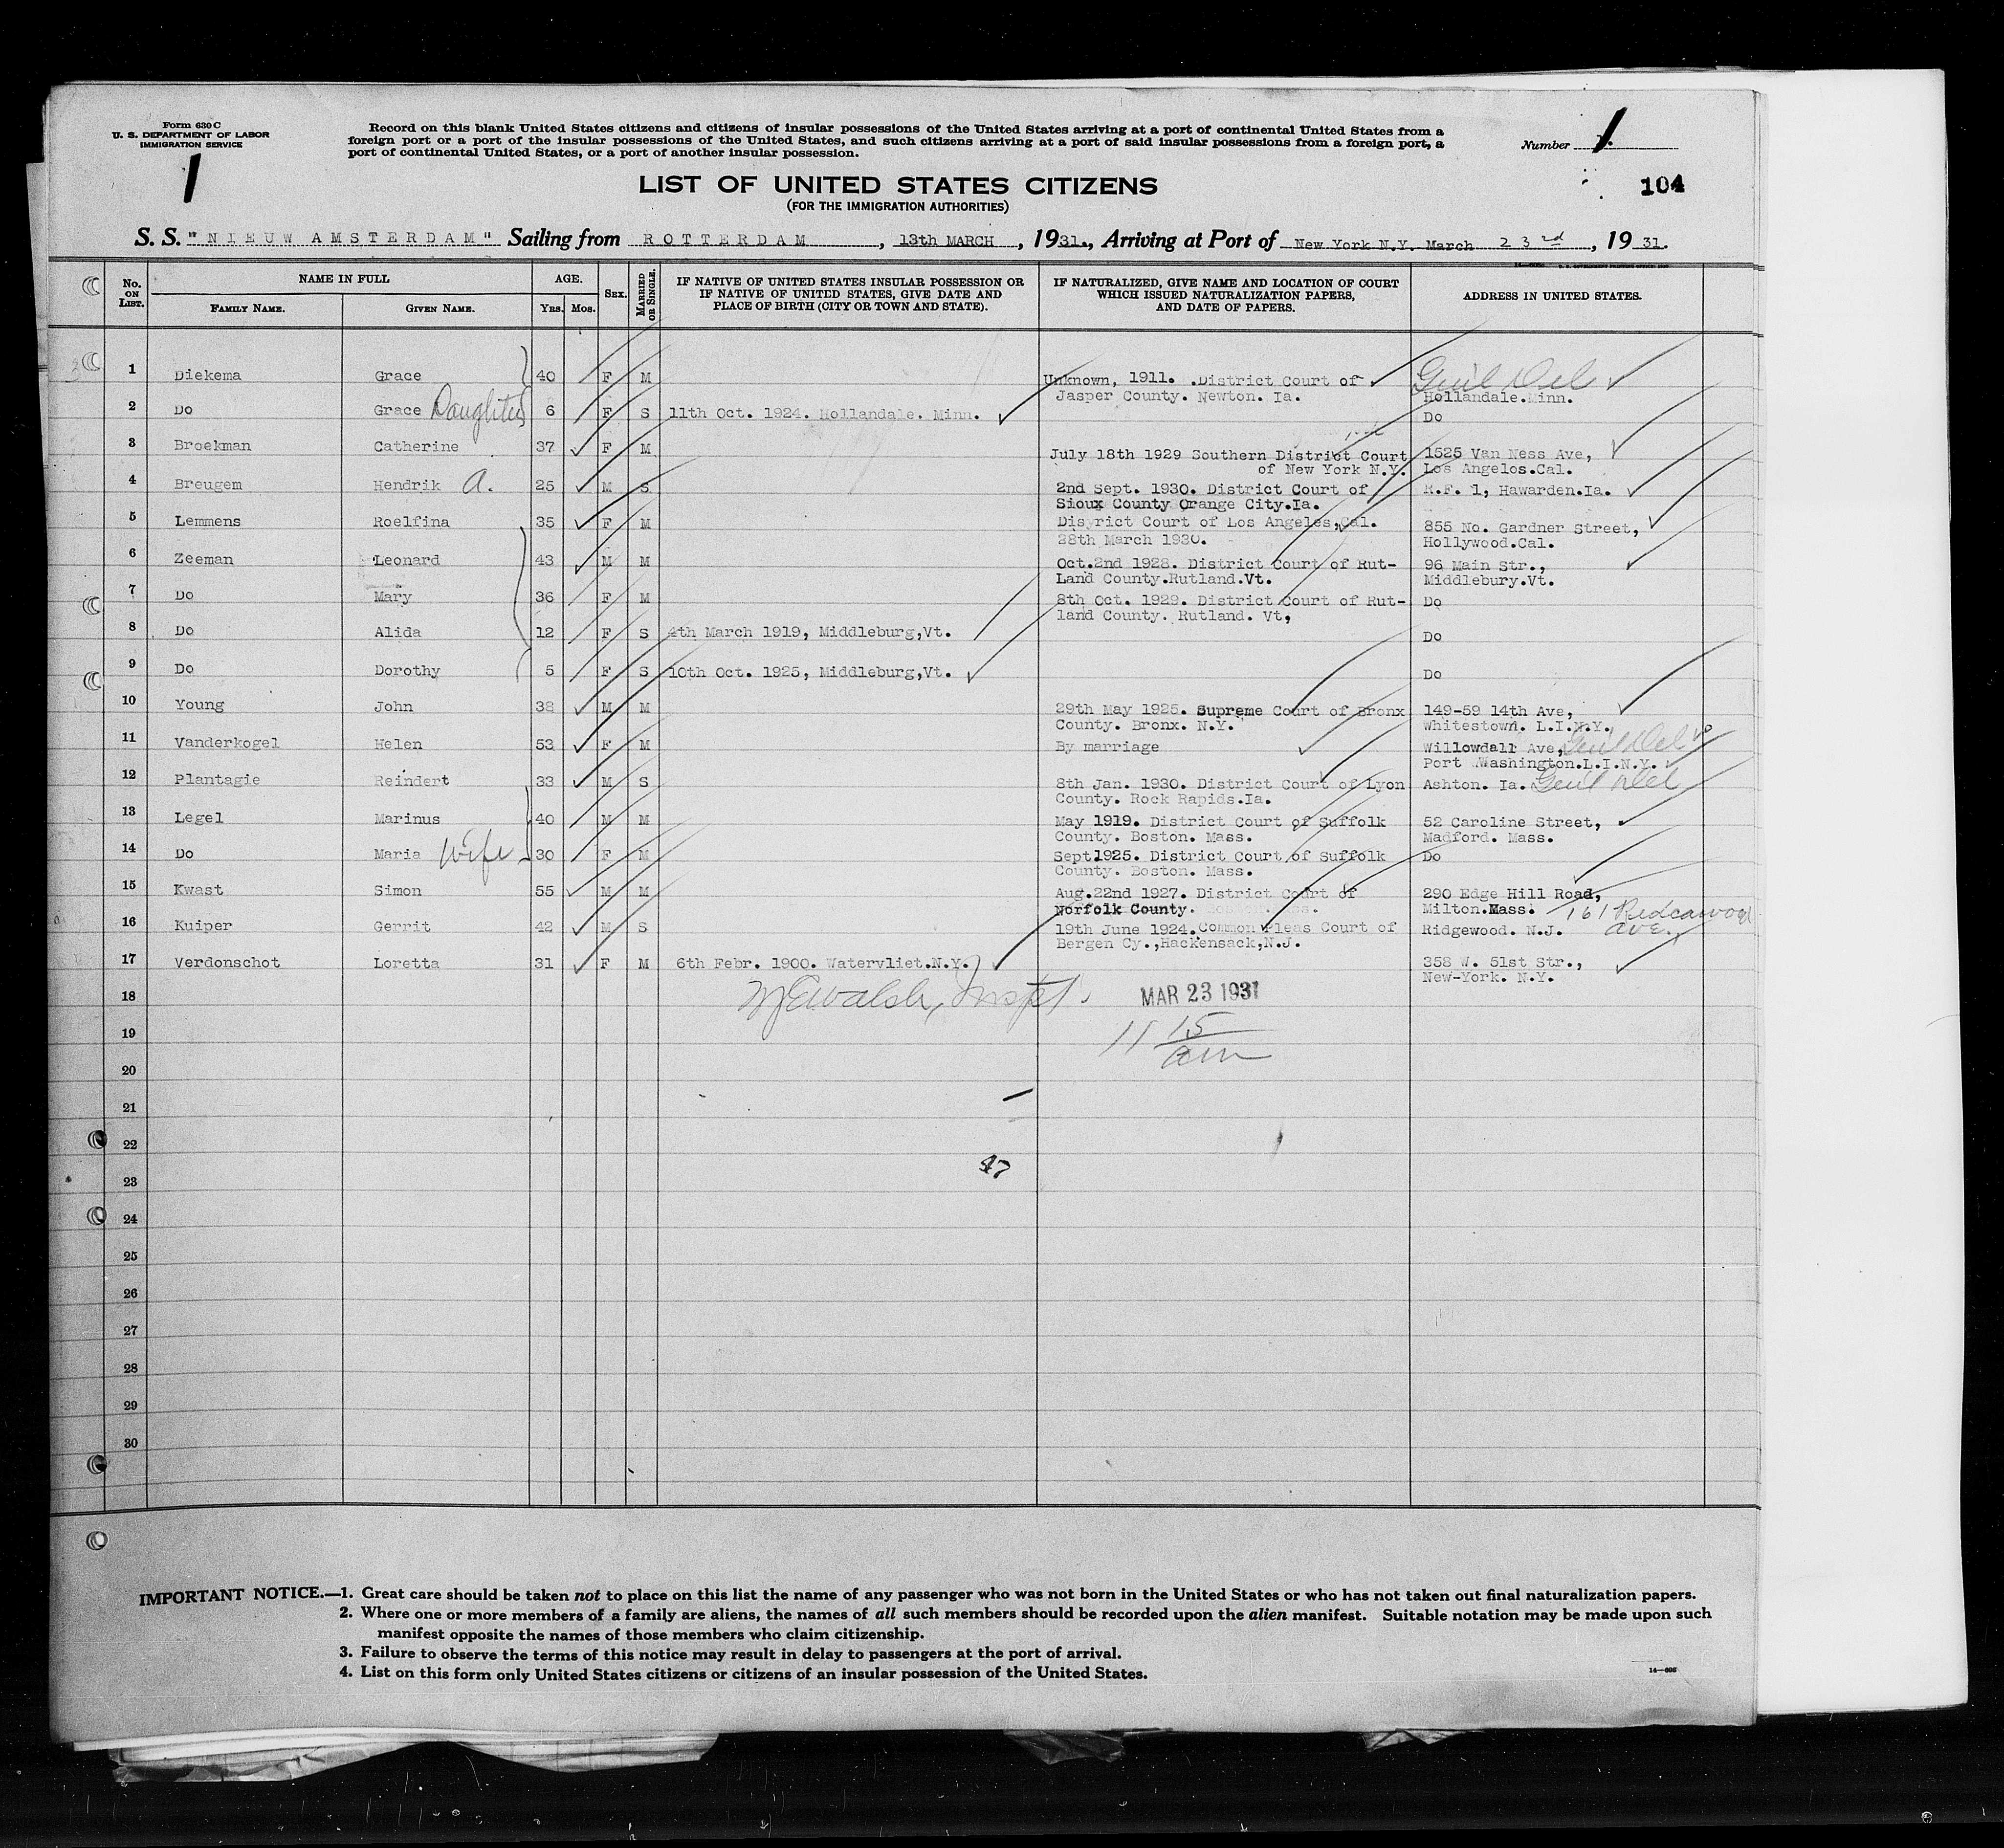 Form 630 C
U. S. DEPARTMENT OF LABOR
IMMIGRATION SERVICE
1
Record on this blank United States citizens and citizens of insular possessions of the United States arriving at a port of continental United States from a
foreign port or a port of the insular possessions of the United States, and such citizens arriving at a port of said insular possessions from a foreign port, a
port of continental United States, or a port of another insular possession.
Number 1
104
LIST OF UNITED STATES CITIZENS
(FOR THE IMMIGRATION AUTHORITIES)
S. S. "NIEUW AMSTERDAM" Sailing from ROTTERDAM, 13th MARCH, 1931., Arriving at Port of New York N.Y. March 23rd, 1931.
No. ON LIST. NAME IN FULL AGE. SEX. MARRIED OR SINGLE. IF NATIVE OF UNITED STATES INSULAR POSSESSION OR IF NATIVE OF UNITED STATES, GIVE DATE AND PLACE OF BIRTH (CITY OR TOWN AND STATE). IF NATURALIZED, GIVE NAME AND LOCATION OF COURT WHICH ISSUED NATURALIZATION PAPERS, AND DATE OF PAPERS. ADDRESS IN UNITED STATES.
FAMILY NAME. GIVEN NAME. YRS. MOS.
1 Diekema Grace 40 F M Unknown, 1911. .District Court of
Jasper County. Newton. Ia. Hollandale.Minn.
2 Do Grace Daughter 6 F S 11th Oct. 1924. Hollandale. Minn. Do
3 Broekman Catherine 37 F M July 18th 1929 Southern District Court 1525 Van Ness Ave,
of New York N.Y. Los Angelos.Cal.
4 Breugem Hendrik A. 25 M S 2nd Sept. 1930. District Court of R.F. 1, Hawarden.Ia.
Sioux County Orange City.Ia.
5 Lemmens Roelfina 35 F M District Court of Los Angeles,Cal. 855 No. Gardner Street,
28th March 1930. Hollywood.Cal.
6 Zeeman Leonard 43 M M Oct.2nd 1928. District Court of Rut- 96 Main Str.,
Land County.Rutland.Vt. Middlebury.Vt.
7 Do Mary 36 F M 8th Oct. 1929. District Court of Rut- Do
land County. Rutland. Vt,
8 Do Alida 12 F S 4th March 1919, Middleburg,Vt. Do
9 Do Dorothy 5 F S 10th Oct. 1925, Middleburg,Vt. Do
10 Young John 38 M M 29th May 1925. Supreme Court of Bronx 149-59 14th Ave,
County. Bronx. N.Y. Whitestown. L.I.N.Y.
11 Vanderkogel Helen 53 F M By marriage Willowdall Ave,
Port Washington.L.I.N.Y.
12 Plantagie Reindert 33 M S 8th Jan. 1930. District Court of Lyon Ashton. Ia.
County. Rock Rapids.Ia.
13 Legel Marinus 40 M M May 1919. District Court of Suffolk 52 Caroline Street,
County. Boston. Mass. Madford. Mass.
14 Do Maria Wife 30 F M Sept1925. District Court of Suffolk Do
County. Boston. Mass.
15 Kwast Simon 55 M M Aug.22nd 1927. District Court of 290 Edge Hill Road,
Norfolk County. Milton.Mass.
16 Kuiper Gerrit 42 M S 19th June 1924.Common Pleas Court of Ridgewood. N.J. 161 Ave.
Bergen Cy.,Hackensack,N.J.
17 Verdonschot Loretta 31 F M 6th Febr. 1900. Watervliet.N.Y. 358 W. 51st Str.,
New-York. N.Y.
18 Walsh, Inspt. MAR 23 1931
19 11 15
am
20
21
22
47
23
24
25
26
27
28
29
30
IMPORTANT NOTICE.—1. Great care should be taken not to place on this list the name of any passenger who was not born in the United States or who has not taken out final naturalization papers.
2. Where one or more members of a family are aliens, the names of all such members should be recorded upon the alien manifest. Suitable notation may be made upon such
manifest opposite the names of those members who claim citizenship.
3. Failure to observe the terms of this notice may result in delay to passengers at the port of arrival.
4. List on this form only United States citizens or citizens of an insular possession of the United States.